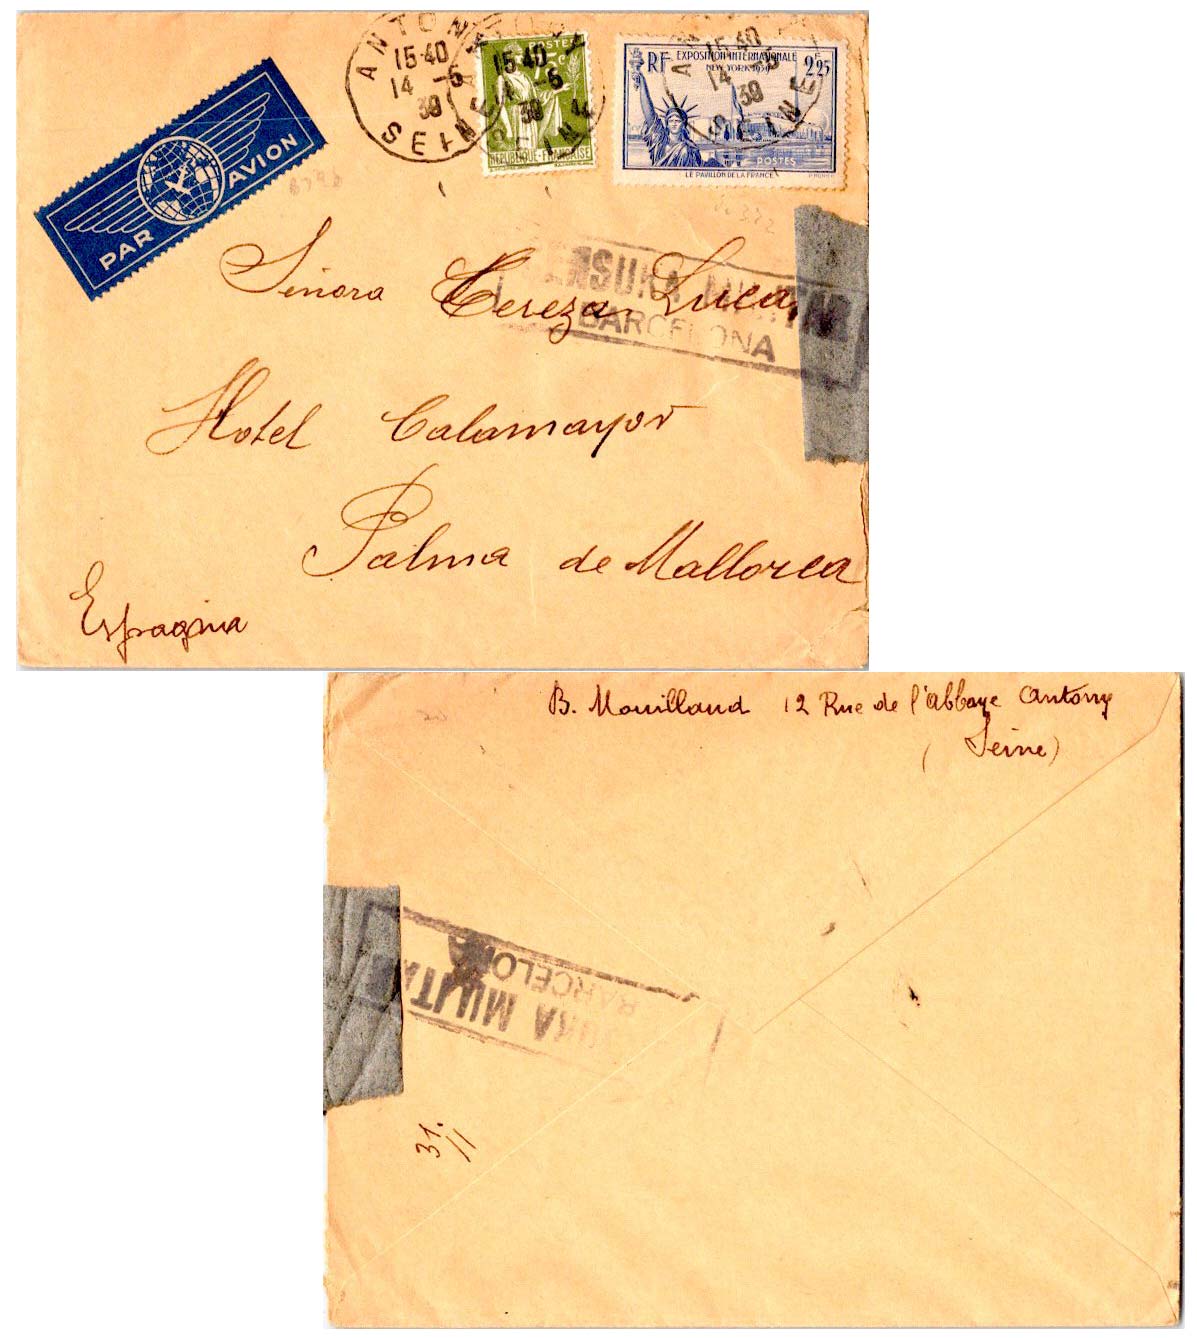 ANTONY
15-40
14 -5
39
SEINE
15-40
-5
39
SEINE
POSTES
75c
REPUBLIQUE-FRANÇAISE
15-40
14 -5
39
SEINE
RF
EXPOSITION INTERNATIONALE
NEW YORK 1939
2F25
POSTES
LE PAVILLON DE LA FRANCE
PAR AVION
CENSURA MILITAR
BARCELONA
Señora Tereza Luca,
Hotel Calamayor
Palma de Mallorca
Espagna
B. Mouilland 12 Rue de l'abbaye Antony
(Seine)
CENSURA MILITAR
BARCELONA
31.
11